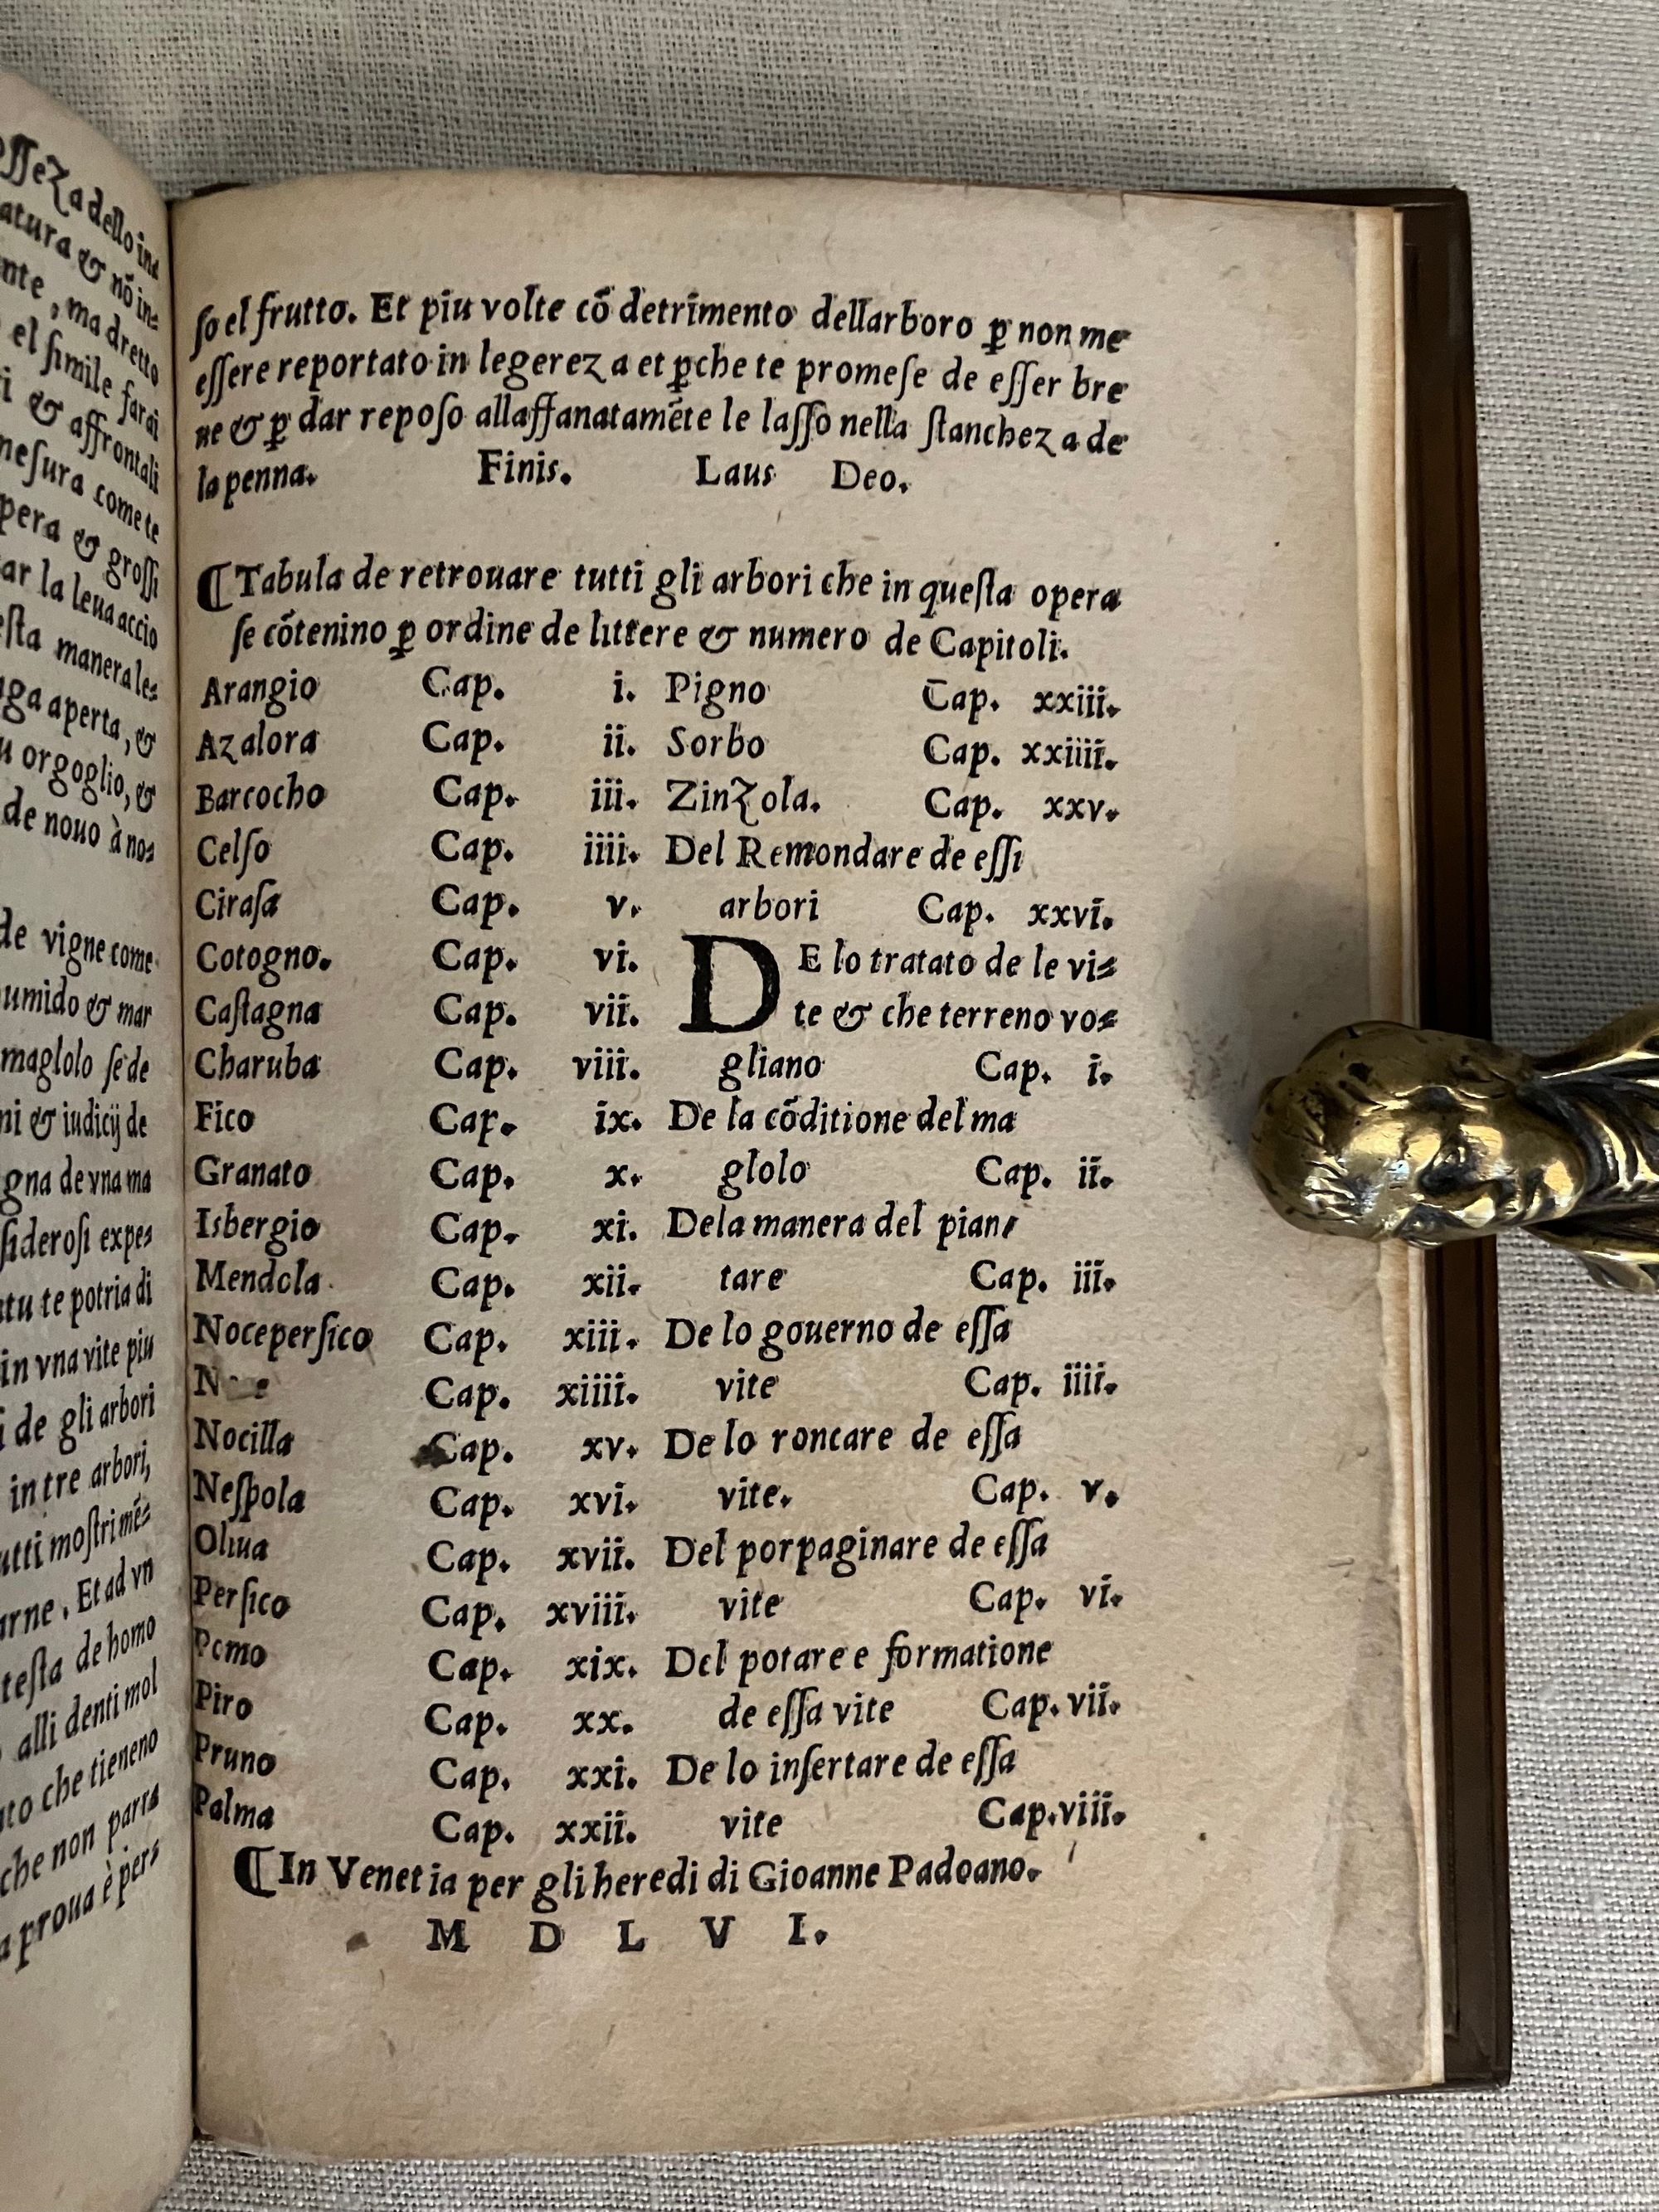 osseza dello ina
atura & nō in-
nte, ma dretto
el simile farai
i & affrontali
mesura come te
pera & grossi
ar la leua accio
esta manera le-
ga aperta, &
u orgoglio, &
de nouo à nos
de vigne come
umido & mar
maglolo se de
ni & iudicij de
gna de vna ma
siderosi expe-
tu te potria di
in vna vite piu
i de gli arbori
in tre arbori,
utti mostri mē-
arne. Et ad vn
testa de homo
alli denti mol
to che tieneno
che non parra
a proua è pers
ſo el frutto. Et piu volte cō detrimento dellarboro ꝑ non me
eſſere reportato in legereza et ꝑche te promeſe de eſſer bre
ue & ꝑ dar repoſo allaffanatamēte le laſſo nella ſtancheza de
la penna. Finis. Laus Deo.
¶ Tabula de retrouare tutti gli arbori che in queſta opera
ſe cōtenino ꝑ ordine de littere & numero de Capitoli.
Arangio Cap. i.
Azalora Cap. ii.
Barcocho Cap. iii.
Celſo Cap. iiii.
Ciraſa Cap. v.
Cotogno. Cap. vi.
Caſtagna Cap. vii.
Charuba Cap. viii.
Fico Cap. ix.
Granato Cap. x.
Isbergio Cap. xi.
Mendola Cap. xii.
Noceperſico Cap. xiii.
Cap. xiiii.
Nocilla Cap. xv.
Neſpola Cap. xvi.
Oliua Cap. xvii.
Perſico Cap. xviii.
Pomo Cap. xix.
Piro Cap. xx.
Pruno Cap. xxi.
Palma Cap. xxii.
Pigno Cap. xxiii.
Sorbo Cap. xxiiii.
Zinzola. Cap. xxv.
Del Remondare de eſſi
arbori Cap. xxvi.
DE lo tratato de le vi-
te & che terreno vo-
gliano Cap. i.
De la cōditione del ma
glolo Cap. ii.
Dela manera del pian
tare Cap. iii.
De lo gouerno de eſſa
vite Cap. iiii.
De lo roncare de eſſa
vite. Cap. v.
Del porpaginare de eſſa
vite Cap. vi.
Del potare e formatione
de eſſa vite Cap. vii.
De lo inſertare de eſſa
vite Cap. viii.
¶ In Venetia per gli heredi di Gioanne Padoano.
M D L V I.